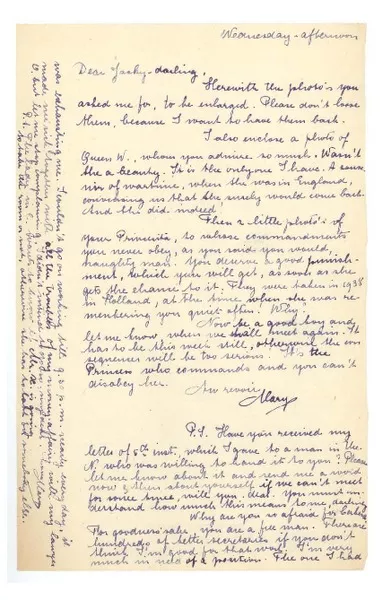 Wednesday - afternoon
Dear Jacky-darling,
Herewith the photo's you
asked me for, to be enlarged. Please don't loose
them, because I want to have them back.
I also enclose a photo of
Queen W., whom you admire so much. Wasn't
she a beauty. It is the only one I have. A souve
nir of wartime, when she was in England,
convincing us that she surely would come back.
And she did indeed.
Then 2 little photo's of
your Princess, to whose commandments
you never obey, as you said you would,
naughty man. You deserve a good punish-
ment, which you will get, as soon as she
gets the chance to it. They were taken in 1938
in Holland, at the time when she was re-
membering you quiet often. Why.
Now be a good boy and
let me know when we shall meet again. It
has to be this week still, otherwise the con
sequences will be too serious. It's the
Princess who commands and you can't
disobey her.
Au revoir
Mary
P.S. Have you received my
letter of 5th inst. which I gave to a man in the
N. who was willing to hand it to you? Please
let me know about it and send me a word
now & then about yourself if we can't meet
for some time, will you, dear. You must un-
derstand how much this means to me darling
Why are you so afraid for
For goodness' sake you are a free man. There are
hundreds of better secretaries if you don't
think I'm good for that work. I'm very
much in need of a position. The one I had
was exhausting me. I couldn't go on working till 9.30 p.m. nearly every day, it
made me ill together with all the troubles of my money affairs with my lawyer